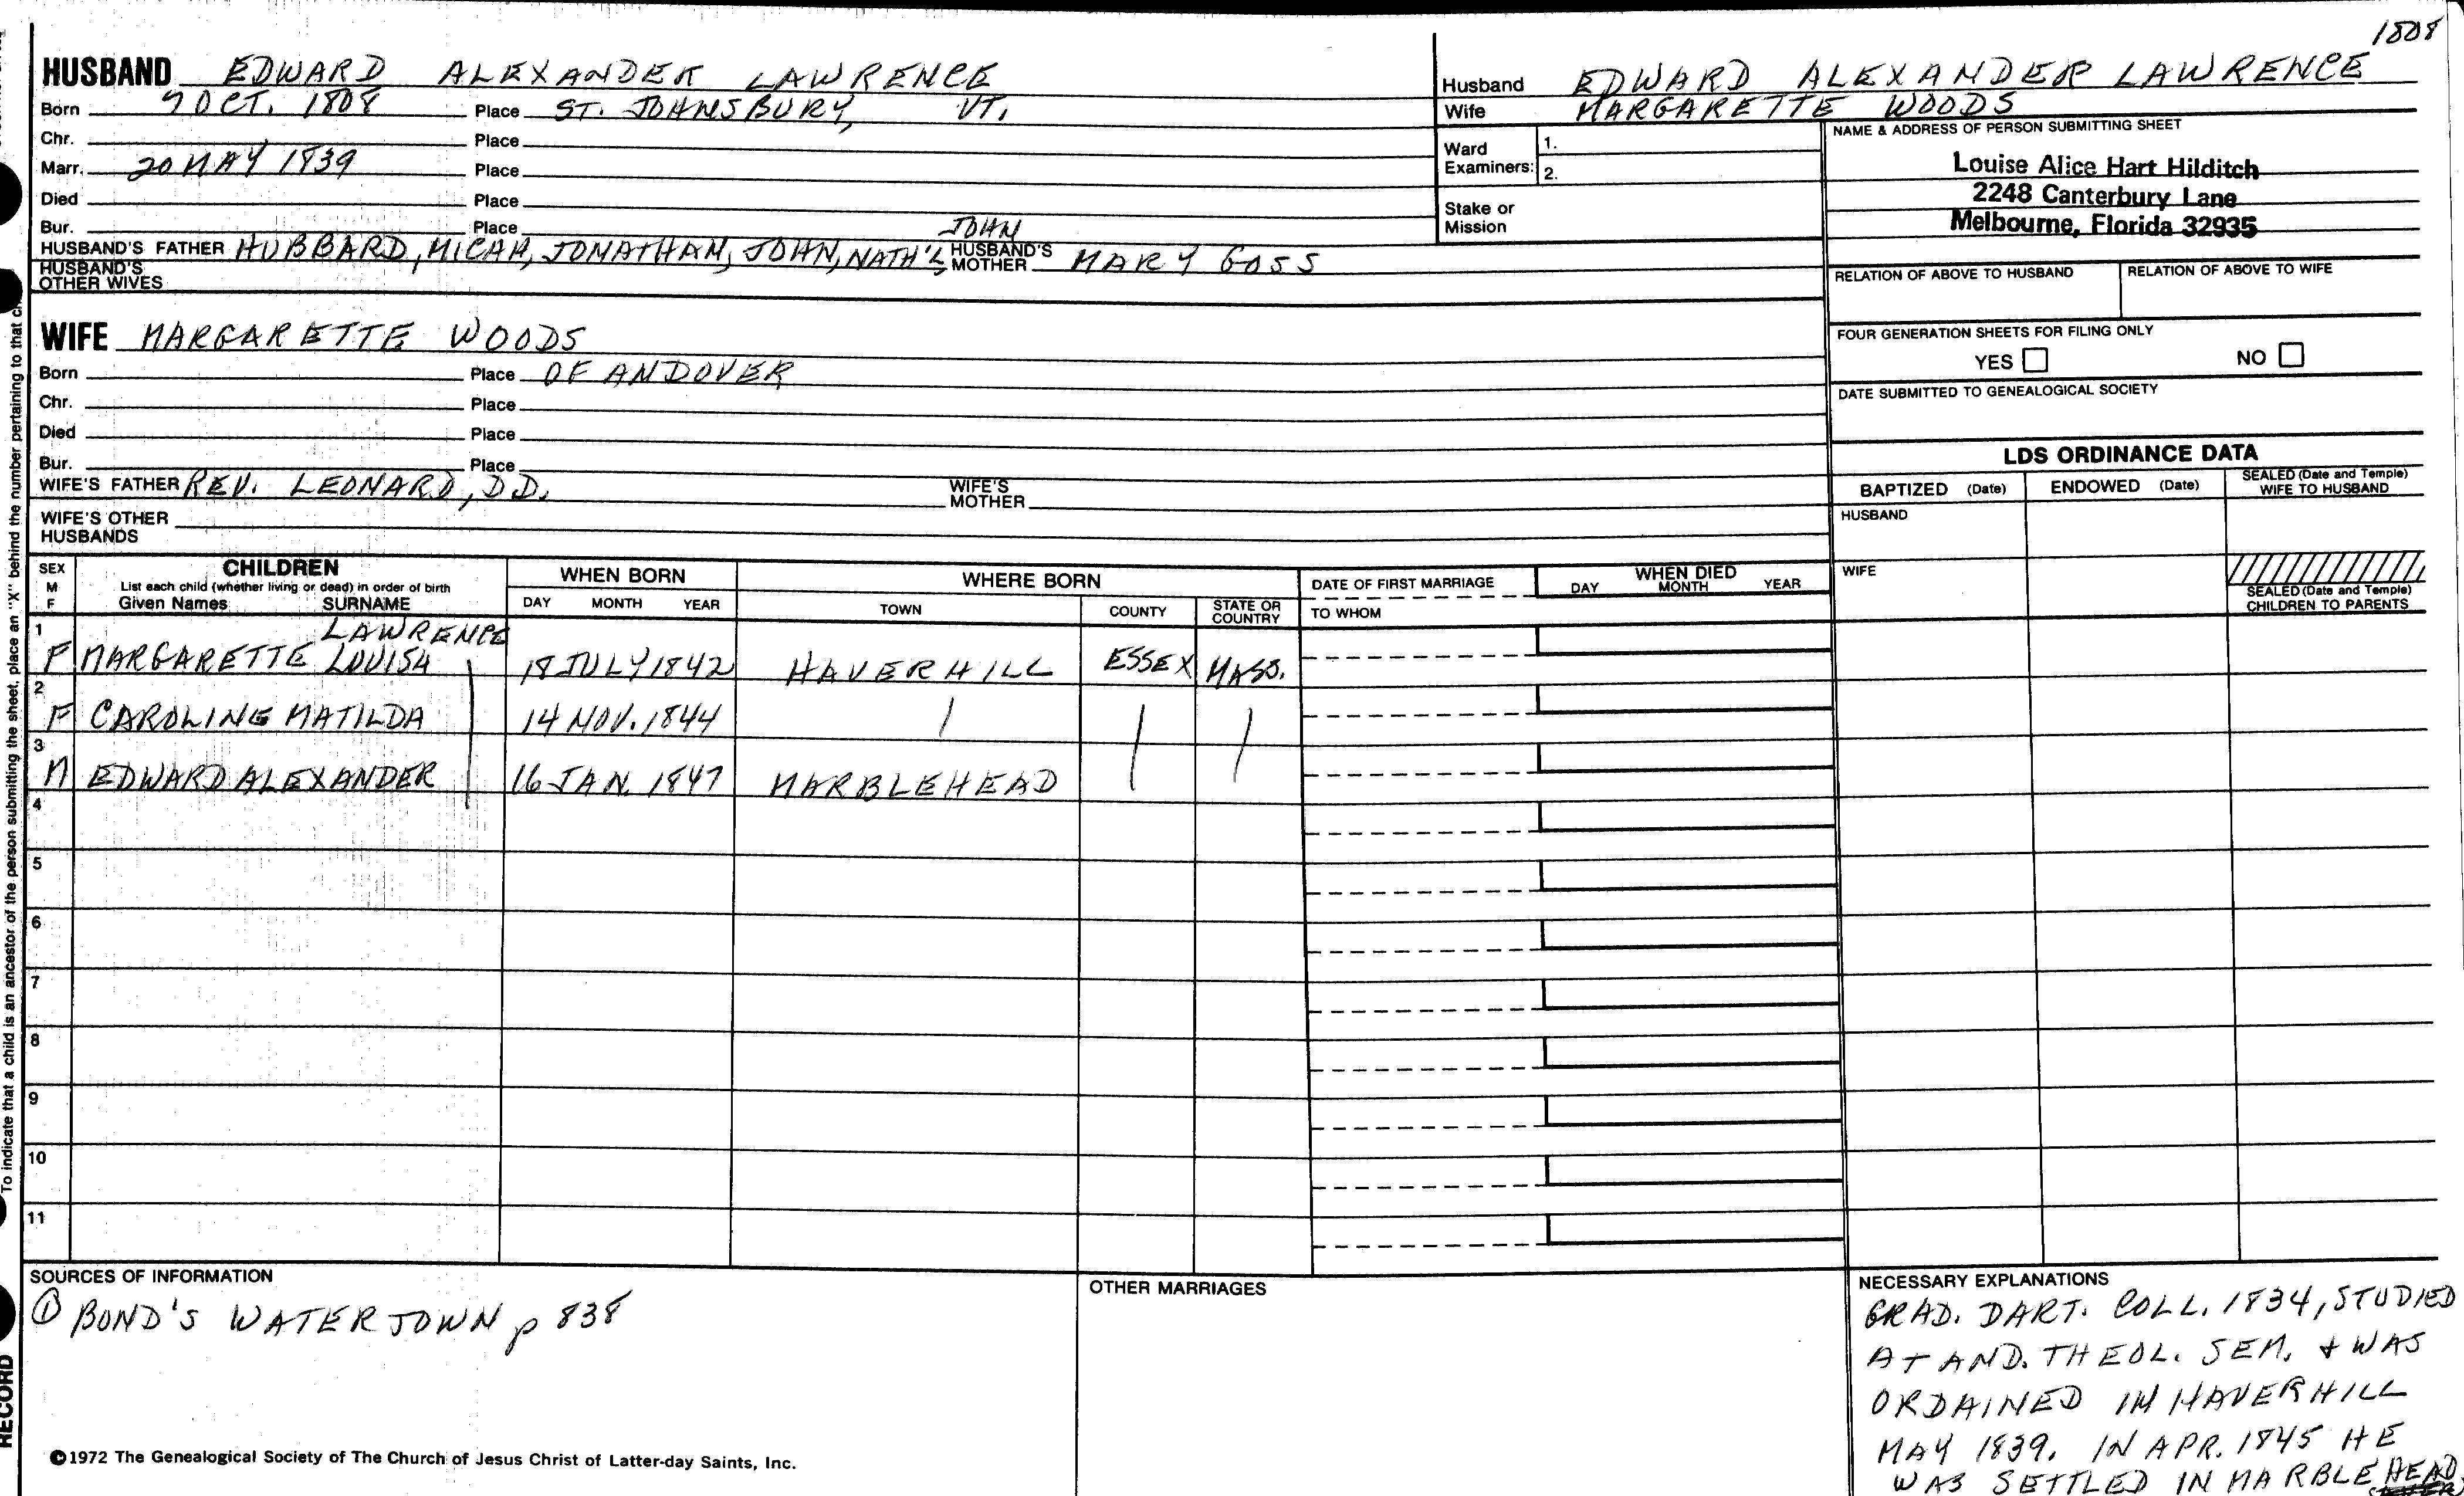 1808
HUSBAND EDWARD ALEXANDER LAWRENCE
Born 7 OCT. 1808 Place ST. JOHNSBURY, VT.
Chr. Place
Marr. 20 MAY 1839 Place
Died Place
Bur. Place
JOHN
HUSBAND'S FATHER HUBBARD, MICAH, JONATHAN, JOHN, NATH'L, HUSBAND'S MOTHER MARY GOSS
HUSBAND'S OTHER WIVES
WIFE MARGARETTE WOODS
Born Place OF ANDOVER
Chr. Place
Died Place
Bur. Place
WIFE'S FATHER REV. LEONARD, DD. WIFE'S MOTHER
WIFE'S OTHER HUSBANDS
Husband EDWARD ALEXANDER LAWRENCE
Wife MARGARETTE WOODS
Ward Examiners: 1.
2.
Stake or Mission
NAME & ADDRESS OF PERSON SUBMITTING SHEET
Louise Alice Hart Hilditch
2248 Canterbury Lane
Melbourne, Florida 32935
RELATION OF ABOVE TO HUSBAND RELATION OF ABOVE TO WIFE
FOUR GENERATION SHEETS FOR FILING ONLY
YES NO
DATE SUBMITTED TO GENEALOGICAL SOCIETY
LDS ORDINANCE DATA
BAPTIZED (Date) ENDOWED (Date) SEALED (Date and Temple) WIFE TO HUSBAND
HUSBAND
WIFE
SEALED (Date and Temple) CHILDREN TO PARENTS
SEX M F CHILDREN WHEN BORN WHERE BORN DATE OF FIRST MARRIAGE WHEN DIED
List each child (whether living or dead) in order of birth
Given Names SURNAME DAY MONTH YEAR TOWN COUNTY STATE OR COUNTRY TO WHOM DAY MONTH YEAR
1 LAWRENCE
F MARGARETTE LOUISA 18 JULY 1842 HAVERHILL ESSEX MASS.
2
F CAROLINE MATILDA 14 NOV. 1844
3
M EDWARD ALEXANDER 16 JAN. 1847 MARBLEHEAD
4
5
6
7
8
9
10
11
SOURCES OF INFORMATION
① BOND'S WATERTOWN p 838
OTHER MARRIAGES
NECESSARY EXPLANATIONS
GRAD. DART. COLL. 1834, STUDIED
AT AND. THEOL. SEM. + WAS
ORDAINED IN HAVERHILL
MAY 1839. IN APR. 1845 HE
WAS SETTLED IN MARBLEHEAD
©1972 The Genealogical Society of The Church of Jesus Christ of Latter-day Saints, Inc.
To indicate that a child is an ancestor of the person submitting the sheet, place an "X" behind the number pertaining to that
RECORD